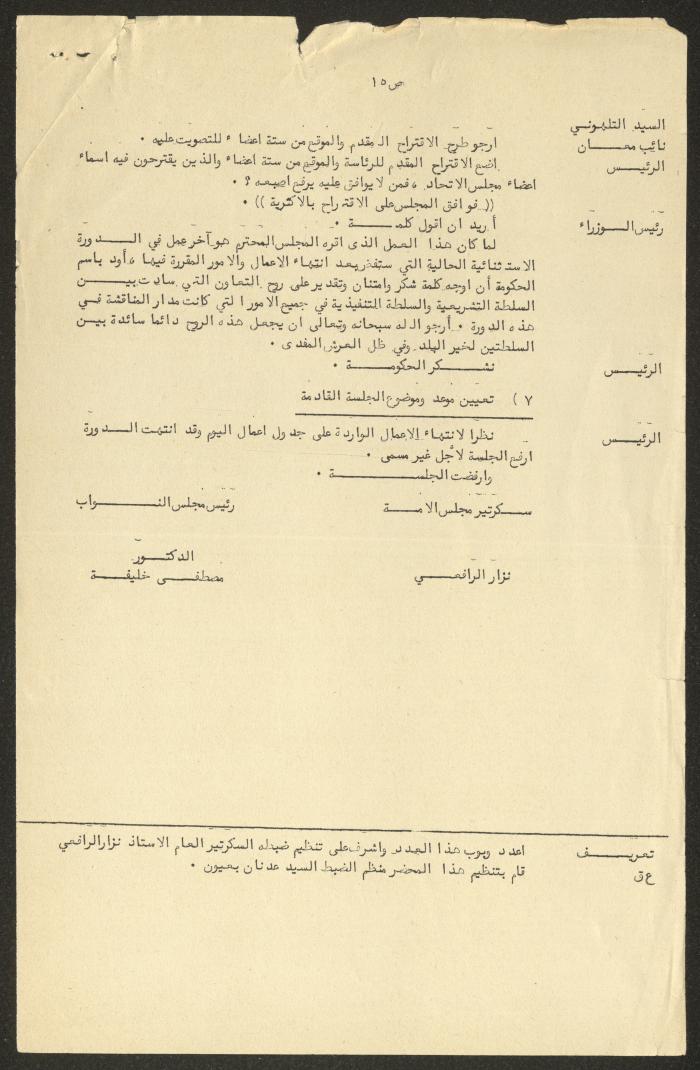 ص ١٥
السيد التلهوني
نائب معـــان ارجو طرح الاقتراح المقدم والموقع من ستة اعضاء للتصويت عليه ٠
الرئيــس اضع الاقتراح المقدم للرئاسة والموقع من ستة اعضاء والذين يقترحون فيه اسماء
اعضاء مجلس الاتحاد ، فمن لا يوافق عليه يرفع اصبعه ؟ ٠
(( فوافق المجلس على الاقتراح بالاكثرية )) ٠
رئيس الـــوزراء أريد ان اقول كلمــــة ٠
لما كان هذا العمل الذى اقره المجلس المحترم هو آخر عمل في الـــدورة
الاستثنائية الحالية التي ستفض بعد انتهاء الاعمال والامور المقررة فيها ، أود باسم
الحكومة أن اوجه كلمة شكر وامتنان وتقدير على روح التعاون التي سادت بيـــن
السلطة التشريعية والسلطة التنفيذية في جميع الامور التي كانت مدار المناقشة فــي
هذه الدورة ٠ أرجو الله سبحانه وتعالى ان يجعل هذه الروح دائما سائدة بيــن
السلطتين لخير البلد وفي ظل العرش المفدى ٠
الرئيـــس نشـــكر الحكومـــة ٠
٧ ) تعيين موعد وموضوع الجلسة القادمة
الرئيـــس نظرا لانتهاء الاعمال الواردة على جدول اعمال اليوم وقد انتهت الـــدورة
ارفع الجلسة لأجل غير مسمى ٠
وارفضت الجلســـة ٠
ســـكرتير مجلس الامـــة رئيس مجلس النـــواب
الدكتــور
نزار الرافعـــي مصطفـــى خليفـــة
تعريـــف اعدد وبوب هذا العدد واشرف على تنظيم ضبطه السكرتير العام الاستاذ نزار الرافعي
ع ق قام بتنظيم هذا المحضر منظم الضبط السيد عدنان بعيون ٠